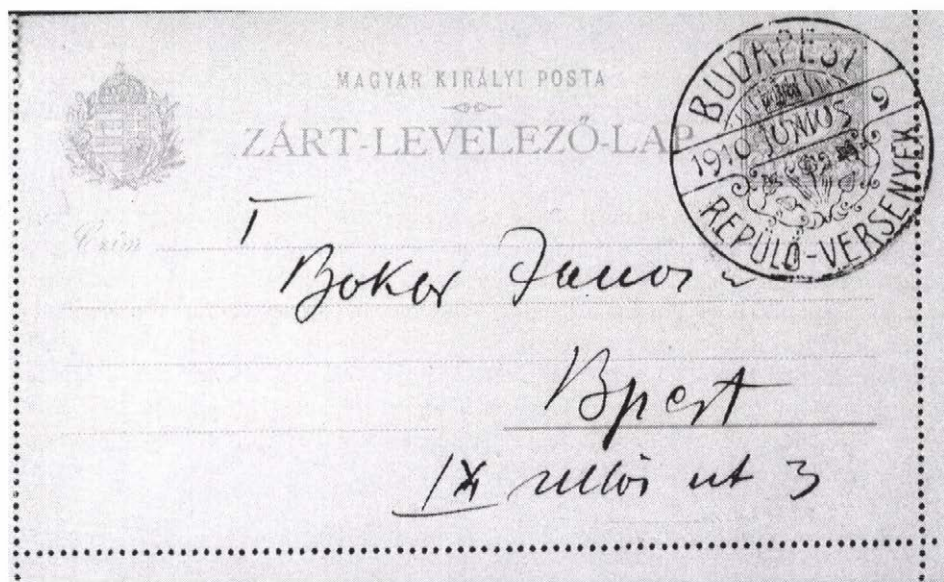 MAGYAR KIRÁLYI POSTA
ZÁRT-LEVELEZŐ-LAP
BUDAPEST
1910 JÚNIUS 9
REPÜLŐ-VERSENYEK
Czím
T
Boker Janos
Bpest
IX üllői ut 3